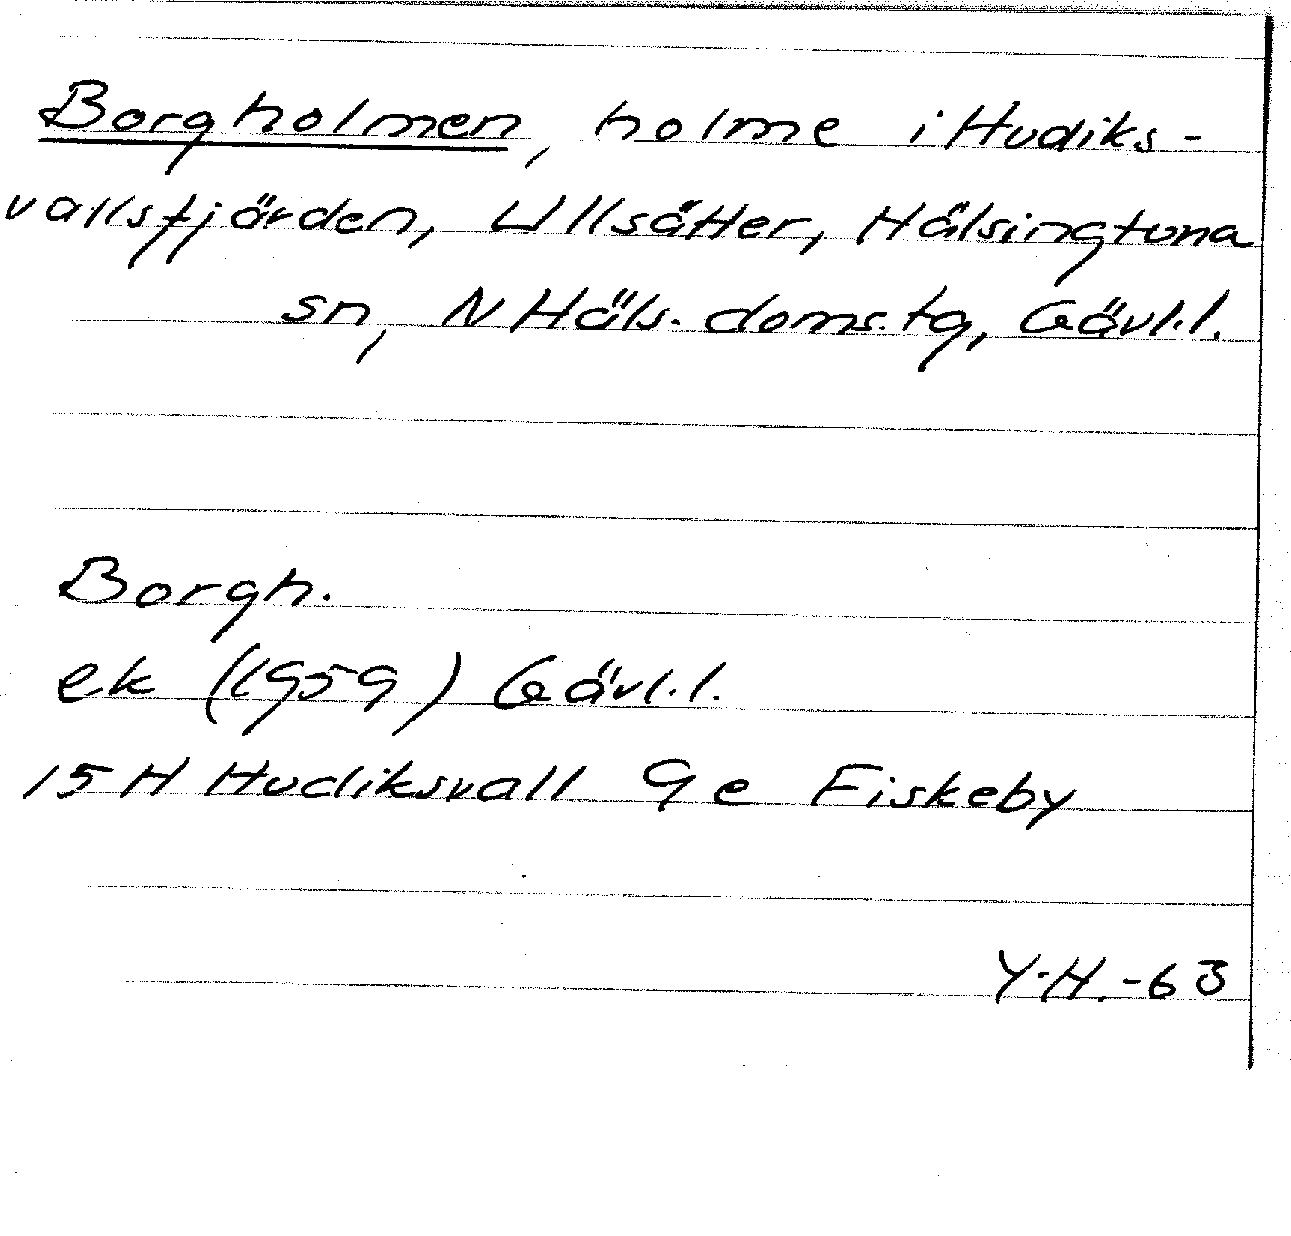 Borgholmen, holme i Hudiks-
vallsfjärden, Ullsätter, Hälsingtuna
sn, N Häls. doms.tg, Gävl.l.
Borgh.
ek (1959) Gävl.l.
15 H Hudiksvall 9 e Fiskeby
Y.H.-63